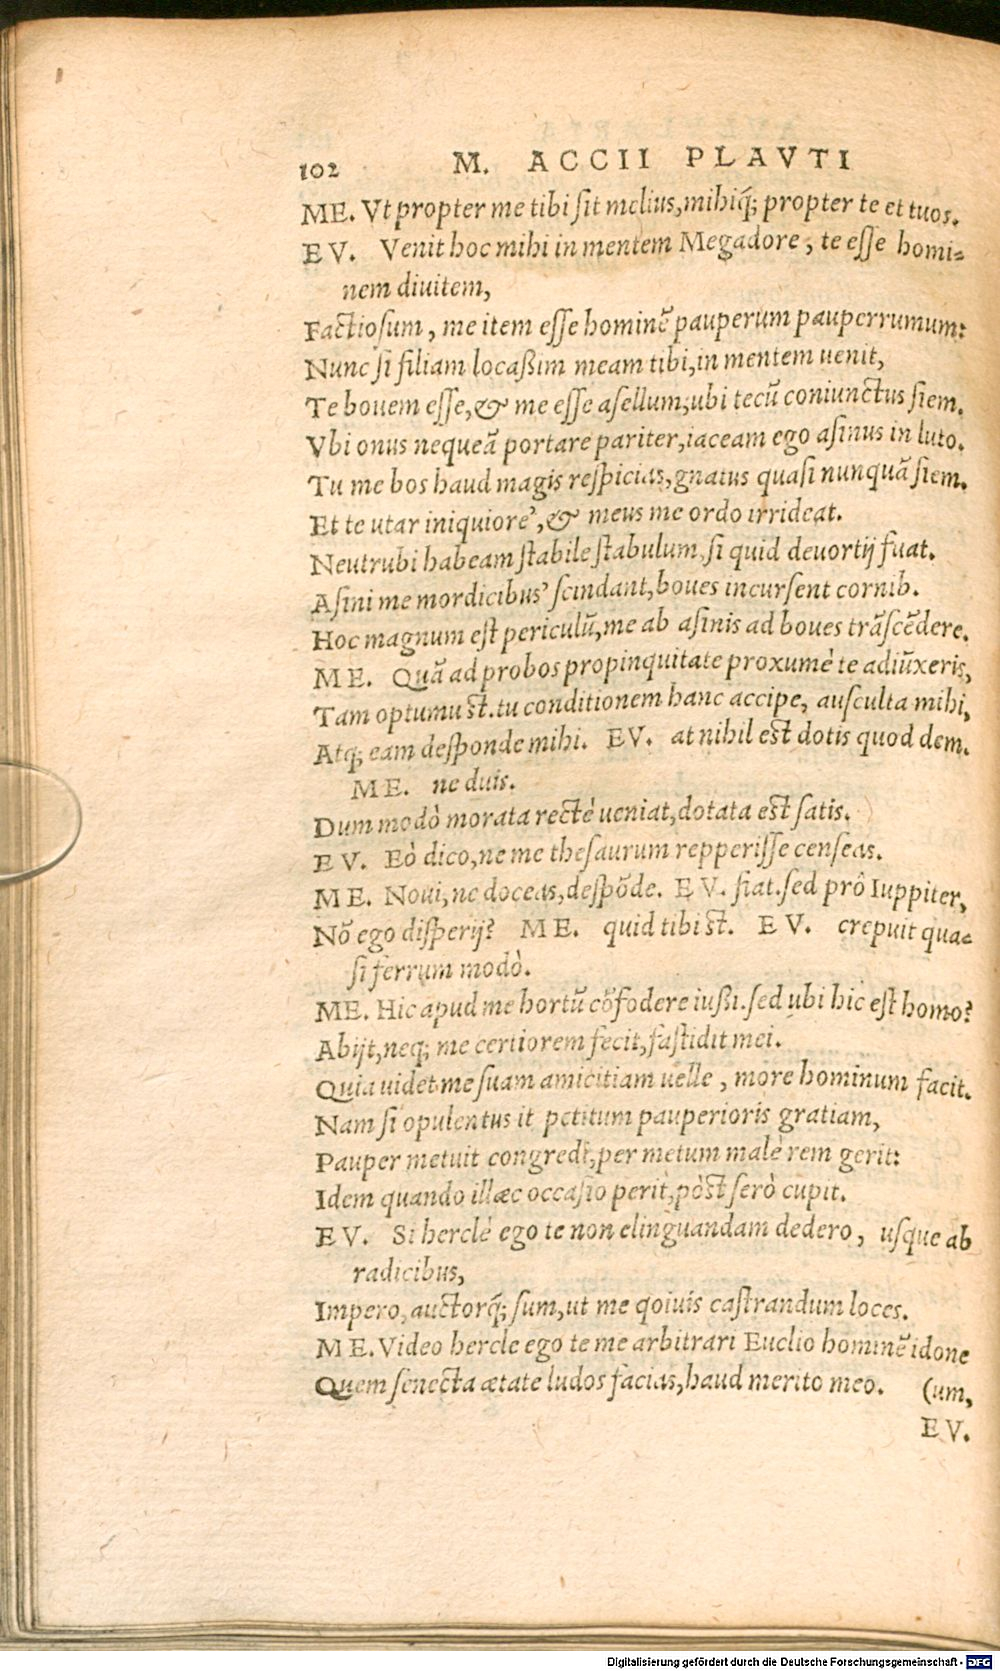 102 M. ACCII PLAVTI
ME. Vt propter me tibi sit melius, mihiq́; propter te et tuos.
EV. Venit hoc mihi in mentem Megadore, te esse homi-
nem diuitem,
Factiosum, me item esse hominē pauperum pauperrumum:
Nunc si filiam locaßim meam tibi, in mentem uenit,
Te bouem esse, & me esse asellum, ubi tecū coniunctus siem.
Vbi onus nequeā portare pariter, iaceam ego asinus in luto.
Tu me bos haud magis respicias, gnatus quasi nunquā siem.
Et te utar iniquiore', & meus me ordo irrideat.
Neutrubi habeam stabile stabulum, si quid deuortij fuat.
Asini me mordicibus' scindant, boues incursent cornib.
Hoc magnum est periculū, me ab asinis ad boues trāscēdere.
ME. Quā ad probos propinquitate proxumè te adiūxeris,
Tam optumu st. tu conditionem hanc accipe, ausculta mihi,
Atq; eam desponde mihi. EV. at nihil est dotis quod dem.
ME. ne duis.
Dum modò morata rectè ueniat, dotata est satis.
EV. Eò dico, ne me thesaurum repperisse censeas.
ME. Noui, ne doceas, despōde. EV. fiat. sed prô Iuppiter,
Nō ego disperij? ME. quid tibi st. EV. crepuit qua-
si ferrum modò.
ME. Hic apud me hortū cōfodere iußi. sed ubi hic est homo?
Abijt, neq; me certiorem fecit, fastidit mei.
Quia uidet me suam amicitiam uelle, more hominum facit.
Nam si opulentus it petitum pauperioris gratiam,
Pauper metuit congredi, per metum malè rem gerit:
Idem quando illæc occasio perit, pòst serò cupit.
EV. Si herclè ego te non elinguandam dedero, usque ab
radicibus,
Impero, auctorq́; sum, ut me qoiuis castrandum loces.
ME. Video hercle ego te me arbitrari Euclio hominē idone
Quem senecta ætate ludos facias, haud merito meo. (um,
EV.
Digitalisierung gefördert durch die Deutsche Forschungsgemeinschaft - DFG